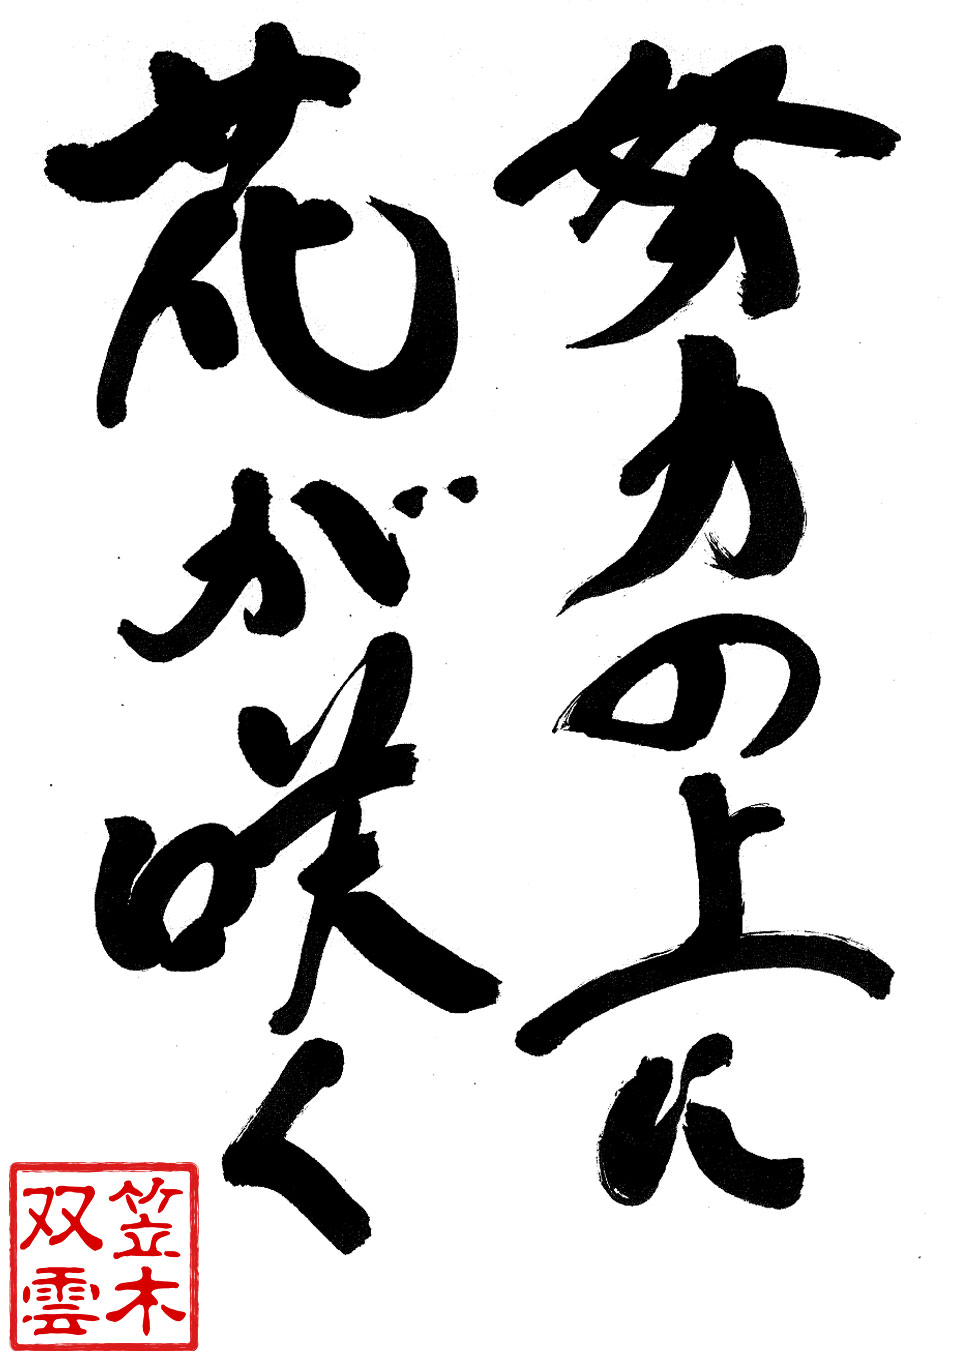 努力の上に
花が咲く
笠木
双雲